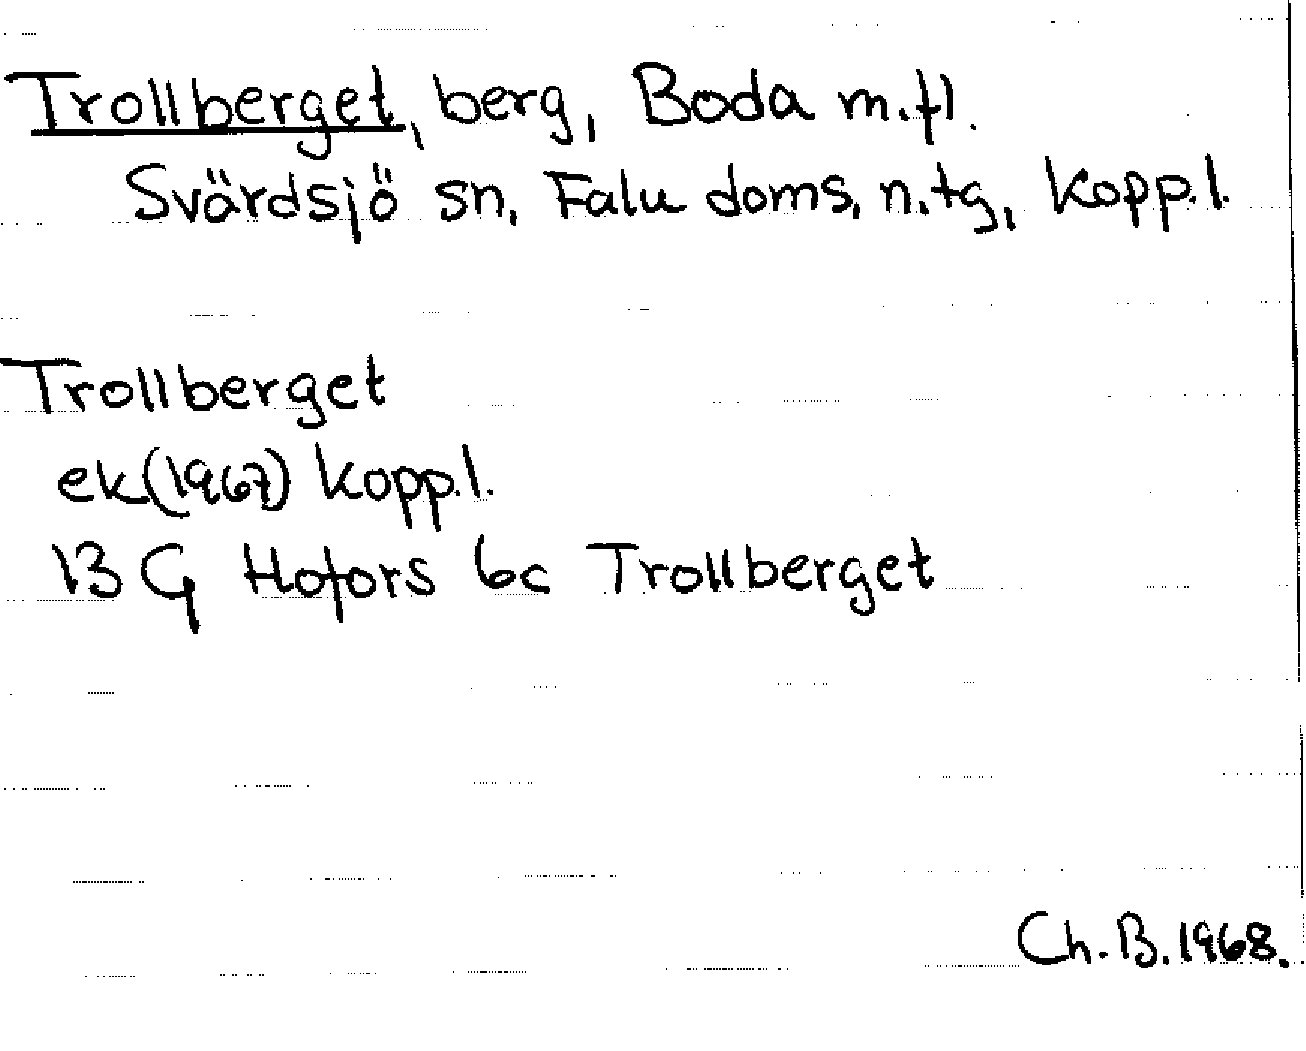 Trollberget, berg, Boda m.fl.
Svärdsjö sn, Falu doms, n.tg, Kopp.l.
Trollberget
ek(1967) Kopp.l.
13 G Hofors 6c Trollberget
Ch.B.1968.